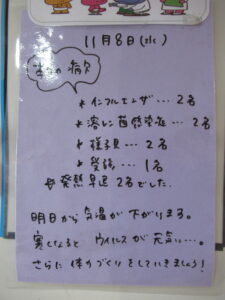 11月8日(水)
本日の病欠
* インフルエンザ… 2名
* 溶レン菌感染症… 2名
* 様子見… 2名
* 発熱… 1名
* 発熱早退 2名でした。
明日から気温が下がります。
寒くなると ウイルスが 元気に…。
さらに 体力づくり をしていきましょう!